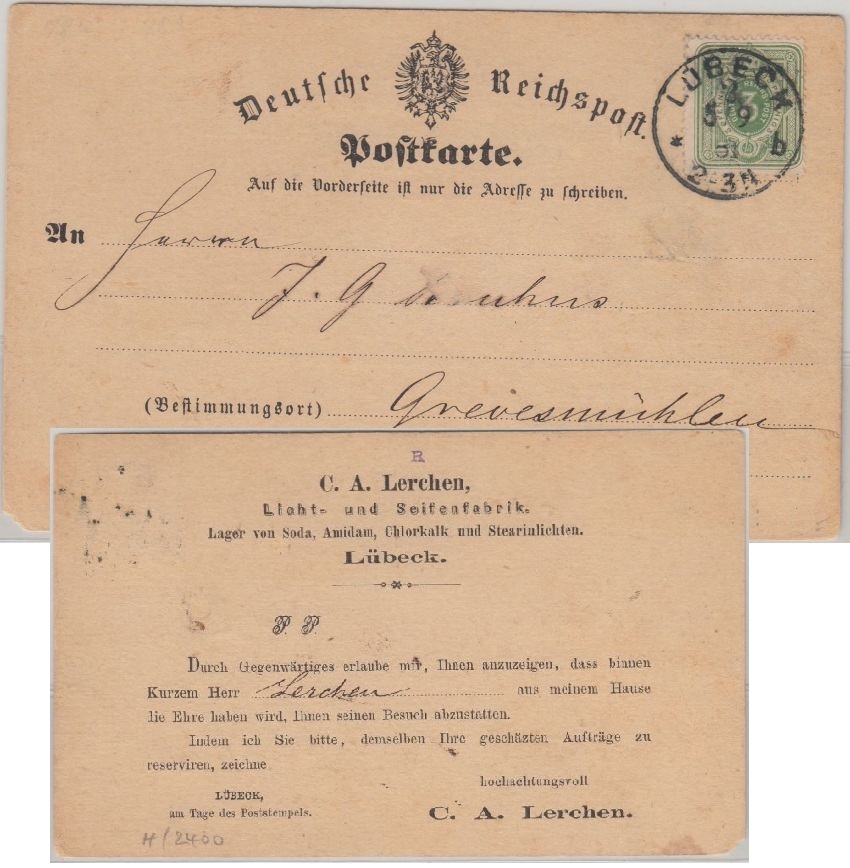 Deutsche Reichspost.
Postkarte.
Auf die Vorderseite ist nur die Adresse zu schreiben.
LÜBECK
5 9
81 b
2-3N
3
An Herrn
J. G
(Bestimmungsort) Grevesmühlen
R
C. A. Lerchen,
Licht- und Seifenfabrik.
Lager von Soda, Amidam, Chlorkalk und Stearinlichten.
Lübeck.
P. P.
Durch Gegenwärtiges erlaube mir, Ihnen anzuzeigen, dass binnen
Kurzem Herr Lerchen aus meinem Hause
die Ehre haben wird, Ihnen seinen Besuch abzustatten.
Indem ich Sie bitte, demselben Ihre geschäzten Aufträge zu
reserviren, zeichne
hochachtungsvoll
LÜBECK,
am Tage des Poststempels.
C. A. Lerchen.
H/2400